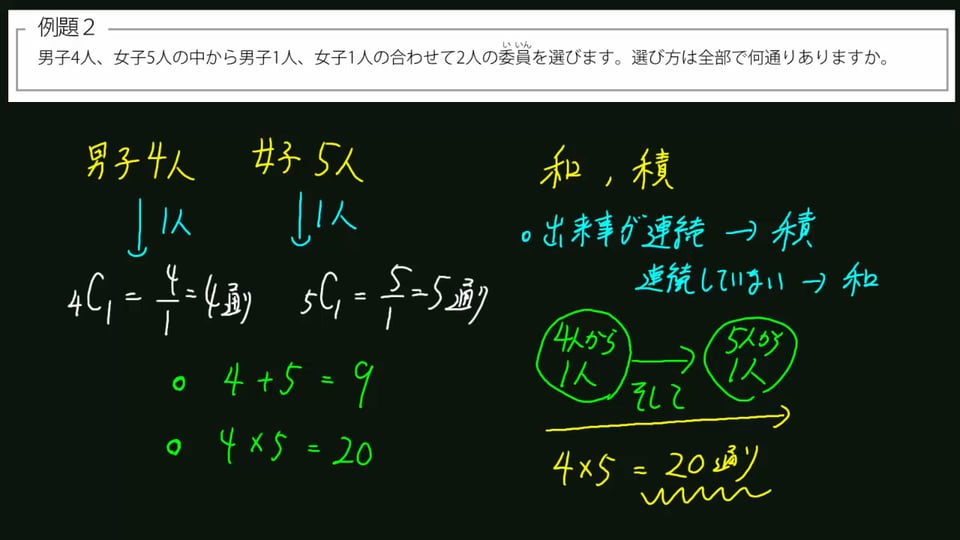 例題2
男子4人、女子5人の中から男子1人、女子1人の合わせて2人の委員を選びます。選び方は全部で何通りありますか。
いいん
男子4人 女子5人
1人 1人
₄C₁ = 4/1 = 4通り ₅C₁ = 5/1 = 5通り
○ 4 + 5 = 9
○ 4 × 5 = 20
和, 積
○出来事が連続 → 積
連続していない → 和
4人から
1人
そして
5人から
1人
4×5 = 20通り